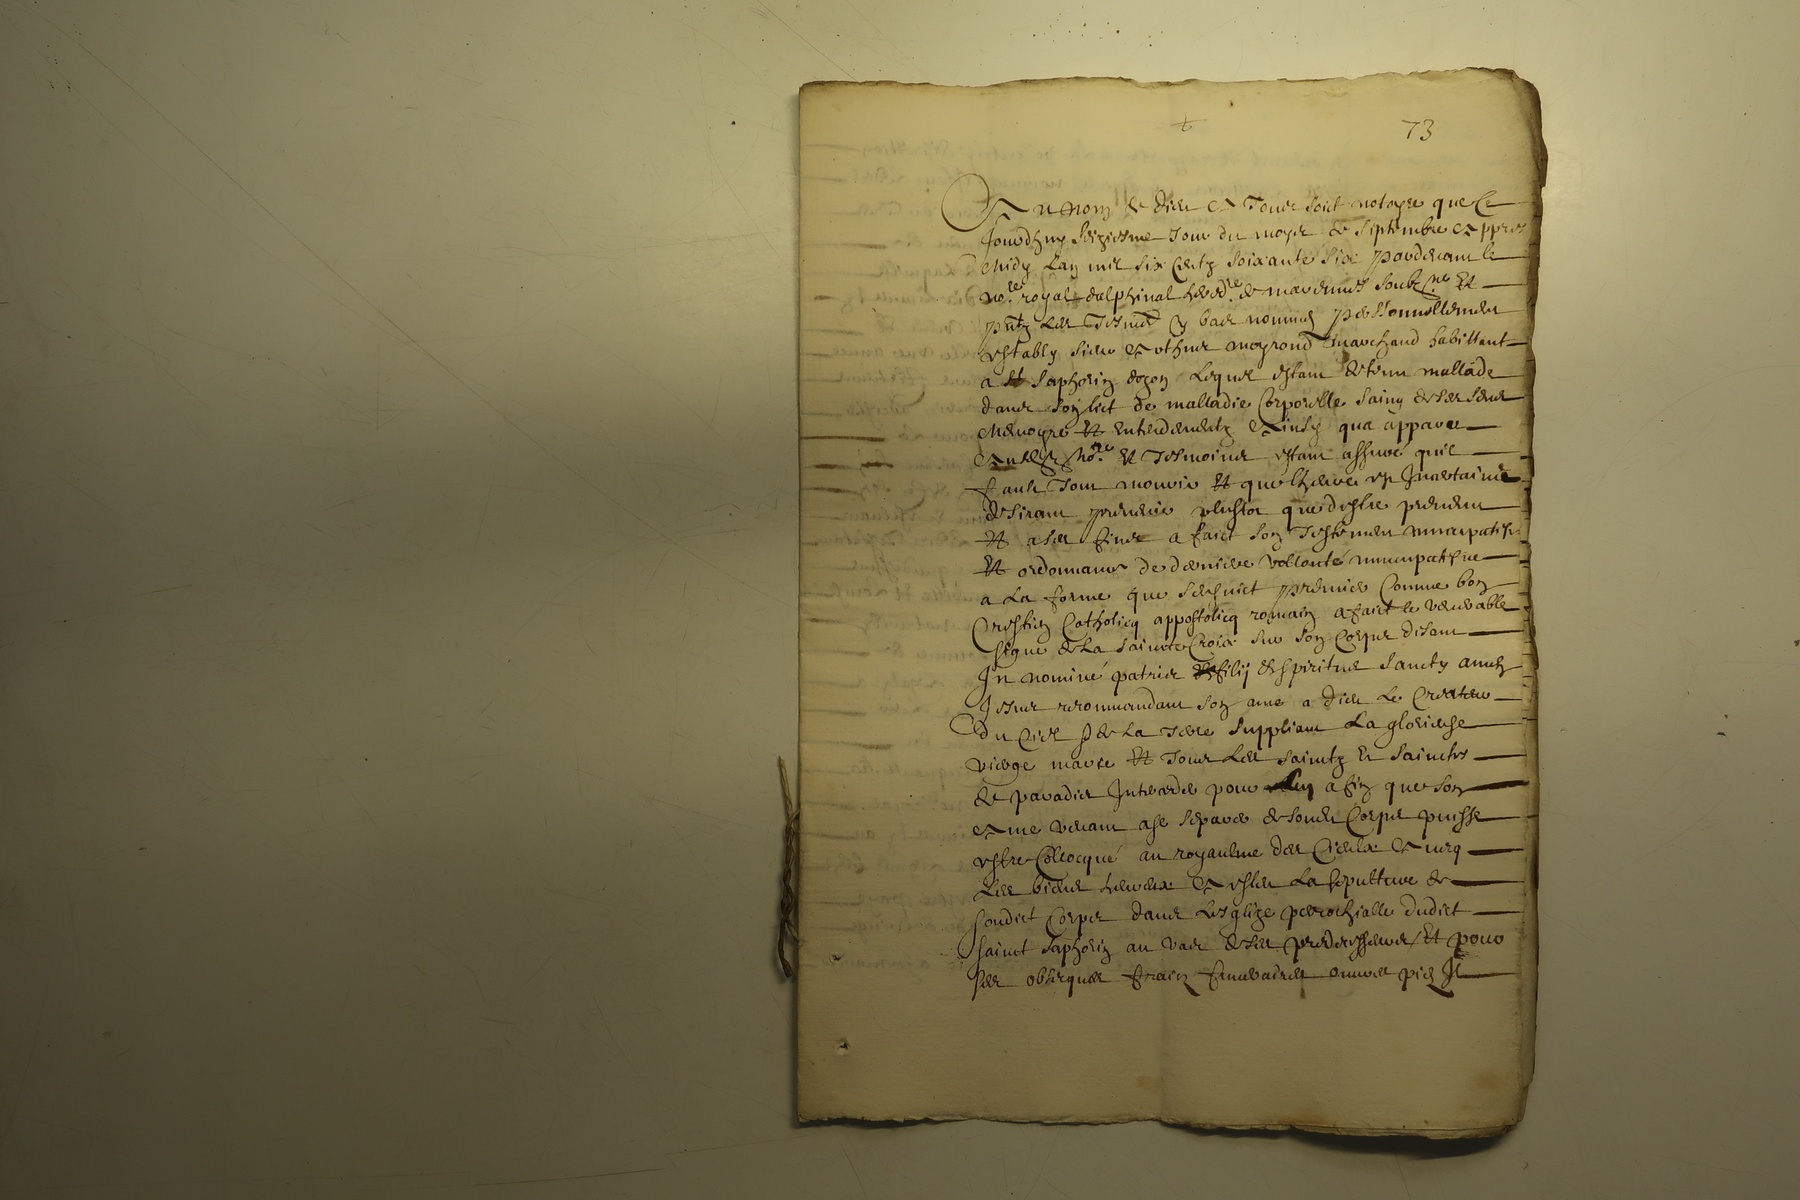 73
Au nom de dieu et Tous soit notoyre que Ce
Jourdhuy seiziesme Jour du moys de Septembre appres
Midy Lan mil six Centz soixante six pardevant le
no.re royal dalphinal hered.re de soubz.ne Et
pntz Les Tesmo bas nommes personnellement
estably sieur moyrond marchand habittant
a st saphorin dozon Lequel estant detenu mallade
dans son lict de malladie Corporelle saing de ses sens
Memoyre et Entendementz Ainsy qua apparu
A no.re Et Tesmoins estant assuré quil
fault Tous mourir Et que lheure est Incertaine
desirant prevenir plustot que destre prevenu
Et a ses fins a faict son Testament nuncupatif
Et ordonnance de derniere vollonté nuncupatifve
a La forme que sensuict premier Comme bon
Crestien Catholicq appostolicq romain a faict le venerable
signe de La saincte Croix sur son Corps disant
In nominé patris et filij et spiritus sancty amen
Jesus recommandant son ame a dieu Le Createur
du Ciel et de La Terre suppliant La glorieuse
vierge marie Et Tous Les sainctz et sainctes
de paradis Interceder pour luy afin que son
Ame venant a se separer de sondit Corps puisse
estre Collocqué au royaulme des Cieulx Avecq
Les biens heureux Et eslu La sepulture de
sondict Corps dans Lesglize parrochialle dudict
sainct saphorin au vas de ses predecesseurs Et pour
ses obseques fraix funeraires ouvres pies Il